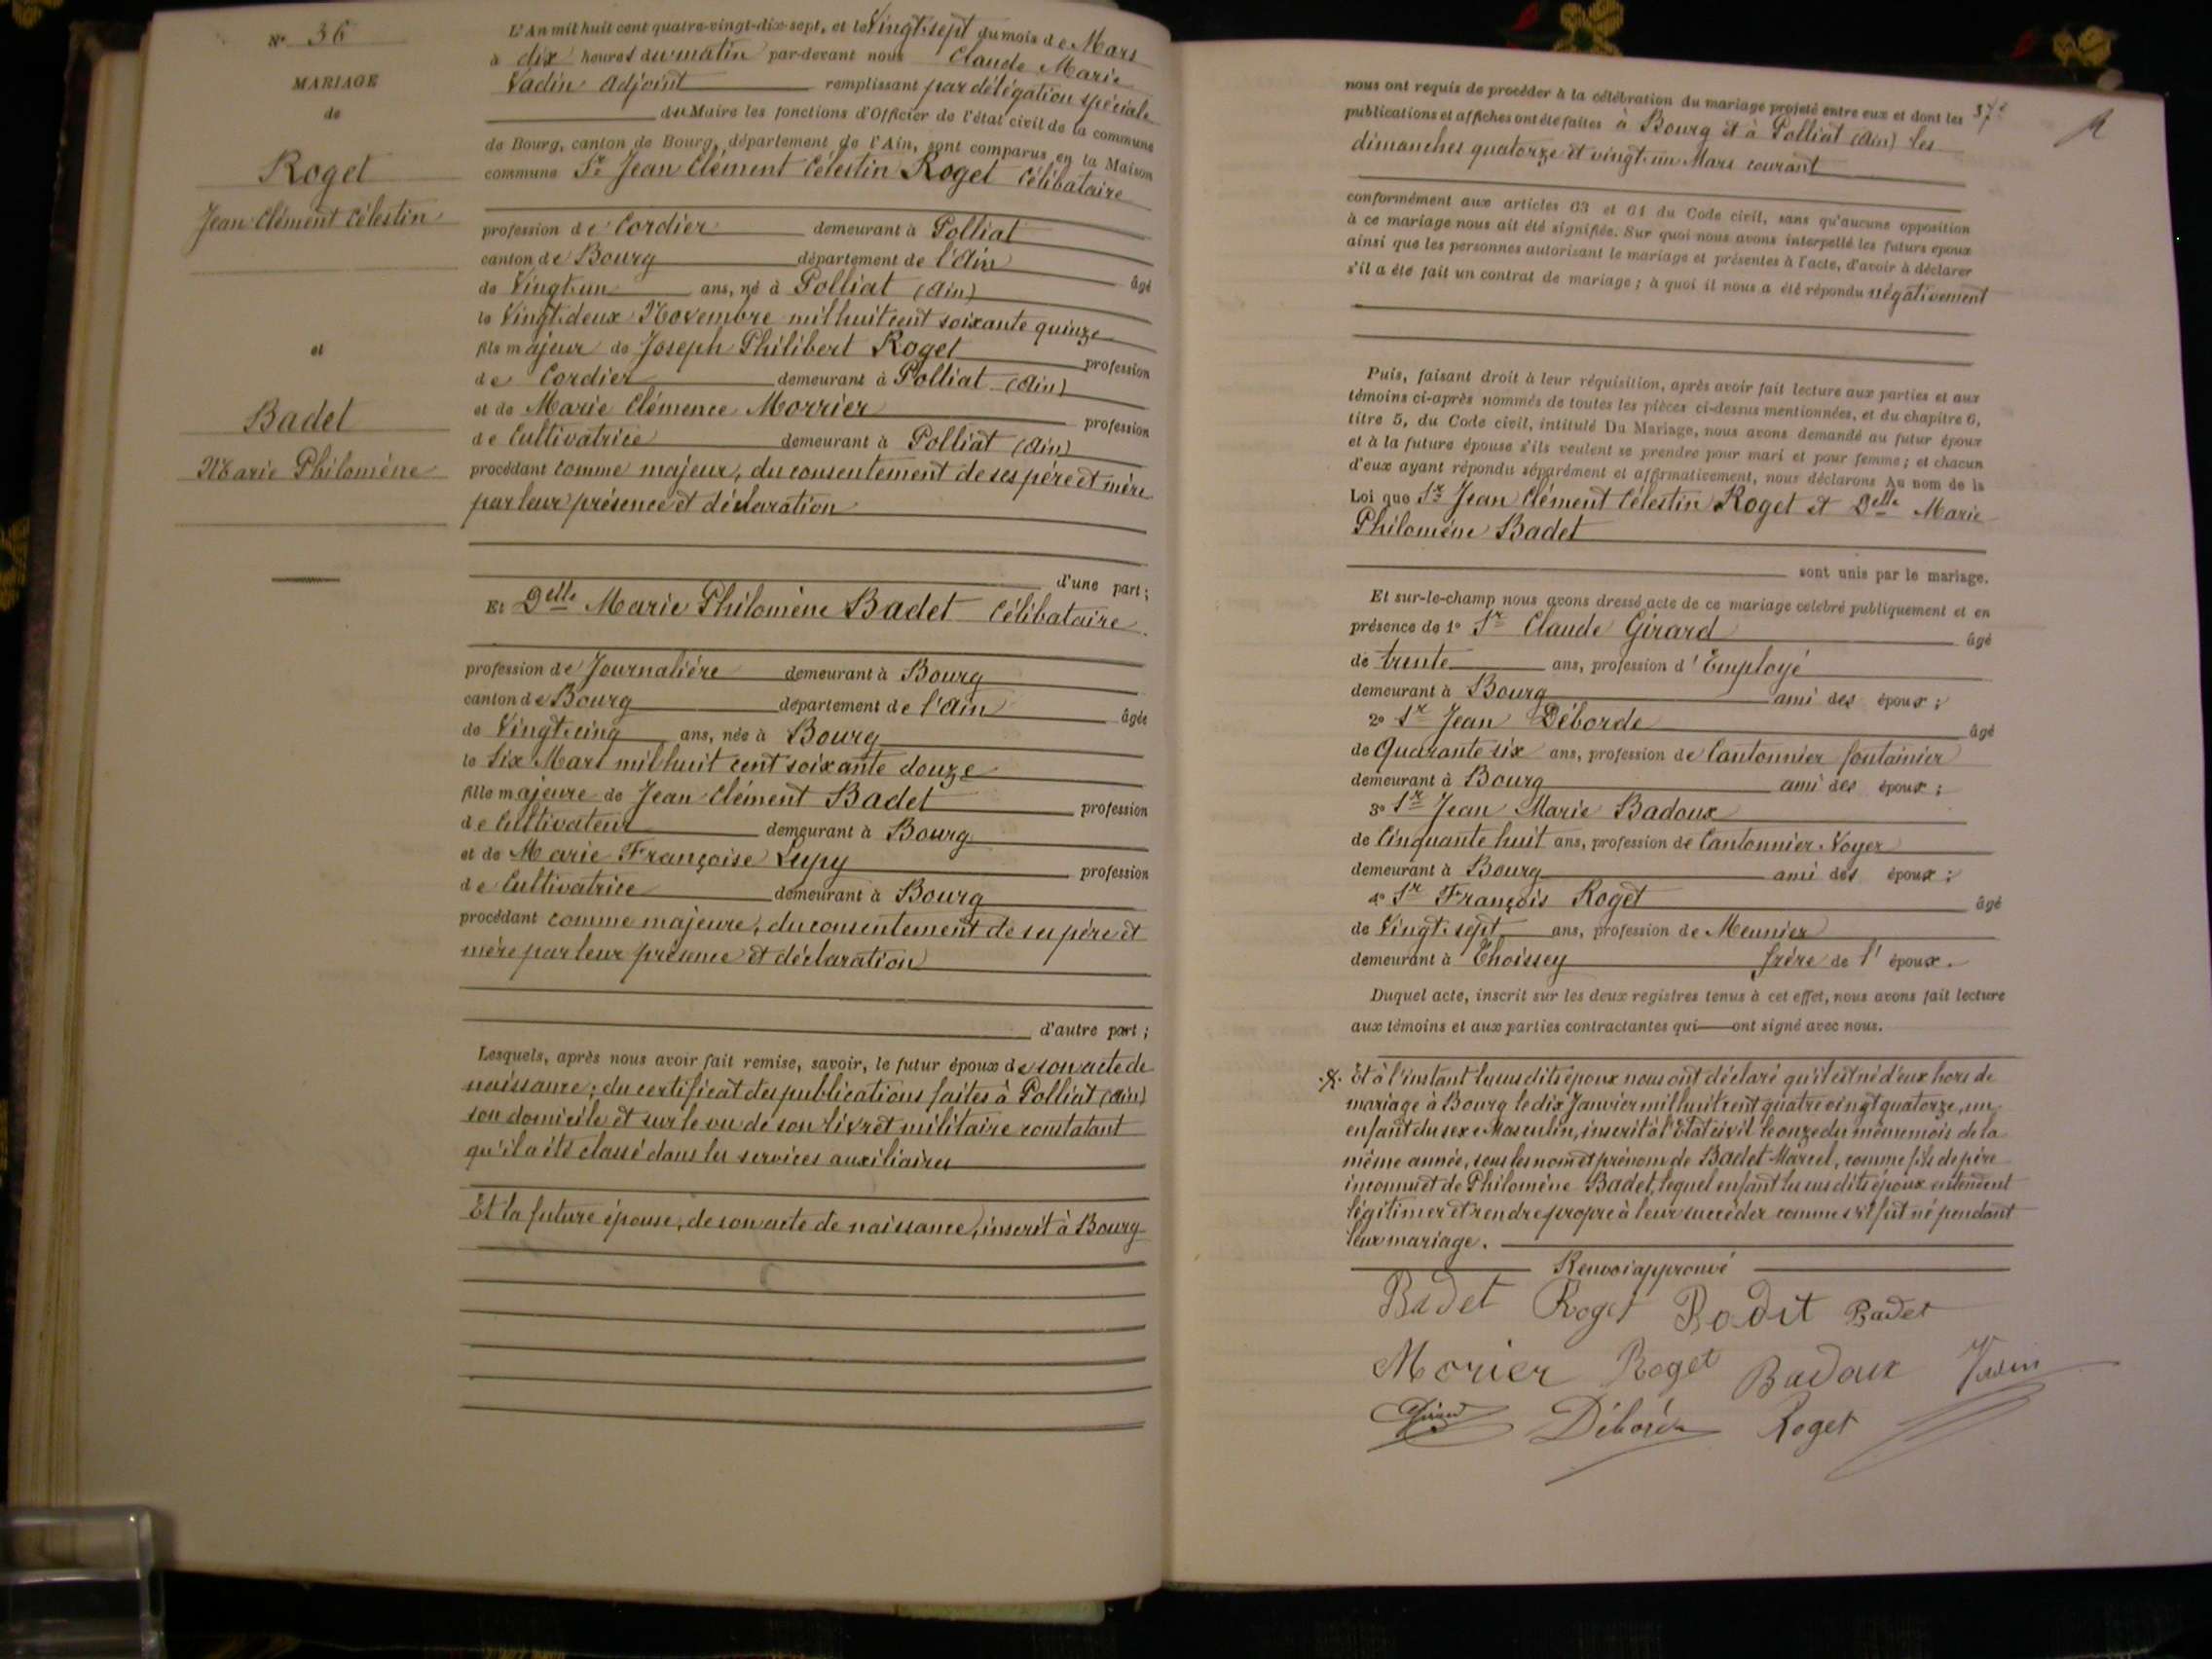 N° 36
MARIAGE
de
Roget
Jean Clément Célestin
et
Badet
Marie Philomène
L'An mil huit cent quatre-vingt-dix-sept, et le Vingt-sept du mois de Mars
à dix heures du matin par-devant nous Claude Marie
Vadin Adjoint remplissant par délégation spéciale
du Maire les fonctions d'Officier de l'état civil de la commune
de Bourg, canton de Bourg, département de l'Ain, sont comparus en la Maison
commune Sr Jean Clément Célestin Roget Célibataire
profession de Cordier demeurant à Polliat
canton de Bourg département de l'Ain âgé
de Vingt-un ans, né à Polliat (Ain)
le Vingt-deux Novembre mil huit cent soixante quinze
fils majeur de Joseph Philibert Roget profession
de Cordier demeurant à Polliat (Ain)
et de Marie Clémence Morrier profession
de Cultivatrice demeurant à Polliat (Ain)
procédant comme majeur, du consentement de ses père et mère
par leur présence et déclaration
d'une part;
Et Delle Marie Philomène Badet Célibataire
profession de Journalière demeurant à Bourg
canton de Bourg département de l'Ain âgée
de Vingt-cinq ans, née à Bourg
le Six Mars mil huit cent soixante douze
fille majeure de Jean Clément Badet profession
de Cultivateur demeurant à Bourg
et de Marie Françoise Lupy profession
de Cultivatrice demeurant à Bourg
procédant comme majeure, du consentement de ses père et
mère par leur présence et déclaration
d'autre part;
Lesquels, après nous avoir fait remise, savoir, le futur époux de son acte de
naissance; du certificat des publications faites à Polliat (Ain)
son domicile et sur le vu de son livret militaire constatant
qu'il a été classé dans les services auxiliaires
Et la future épouse, de son acte de naissance, inscrit à Bourg
nous ont requis de procéder à la célébration du mariage projeté entre eux et dont les
publications et affiches ont été faites à Bourg et à Polliat (Ain) les
dimanches quatorze et vingt-un Mars courant
conformément aux articles 63 et 64 du Code civil, sans qu'aucune opposition
à ce mariage nous ait été signifiée. Sur quoi nous avons interpellé les futurs époux
ainsi que les personnes autorisant le mariage et présentes à l'acte, d'avoir à déclarer
s'il a été fait un contrat de mariage; à quoi il nous a été répondu négativement
Puis, faisant droit à leur réquisition, après avoir fait lecture aux parties et aux
témoins ci-après nommés de toutes les pièces ci-dessus mentionnées, et du chapitre 6,
titre 5, du Code civil, intitulé Du Mariage, nous avons demandé au futur époux
et à la future épouse s'ils veulent se prendre pour mari et pour femme; et chacun
d'eux ayant répondu séparément et affirmativement, nous déclarons Au nom de la
Loi que Sr Jean Clément Célestin Roget et Delle Marie
Philomène Badet
sont unis par le mariage.
Et sur-le-champ nous avons dressé acte de ce mariage célébré publiquement et en
présence de 1° Sr Claude Girard âgé
de trente ans, profession d'Employé
demeurant à Bourg ami des époux;
2° Sr Jean Déborde âgé
de Quarante six ans, profession de Cantonnier fontainier
demeurant à Bourg ami des époux;
3° Sr Jean Marie Badoux
de Cinquante huit ans, profession de Cantonnier-Voyer
demeurant à Bourg ami des époux;
4° Sr François Roget âgé
de Vingt-sept ans, profession de Meunier
demeurant à Thoissey frère de l'époux.
Duquel acte, inscrit sur les deux registres tenus à cet effet, nous avons fait lecture
aux témoins et aux parties contractantes qui ont signé avec nous.
Et à l'instant les susdits époux nous ont déclaré qu'il est né d'eux hors de
mariage à Bourg le dix Janvier mil huit cent quatre vingt quatorze, un
enfant du sexe Masculin, inscrit à l'Etat civil le onze du même mois de la
même année, sous les nom et prénom de Badet Marcel, comme fils de père
inconnu et de Philomène Badet, lequel enfant les susdits époux entendent
légitimer et rendre propre à leur succéder comme s'il fut né pendant
leur mariage.
Renvoi approuvé
Badet Roget Badet Badet
Morier Roget Badoux Vadin
Girard Déborde Roget